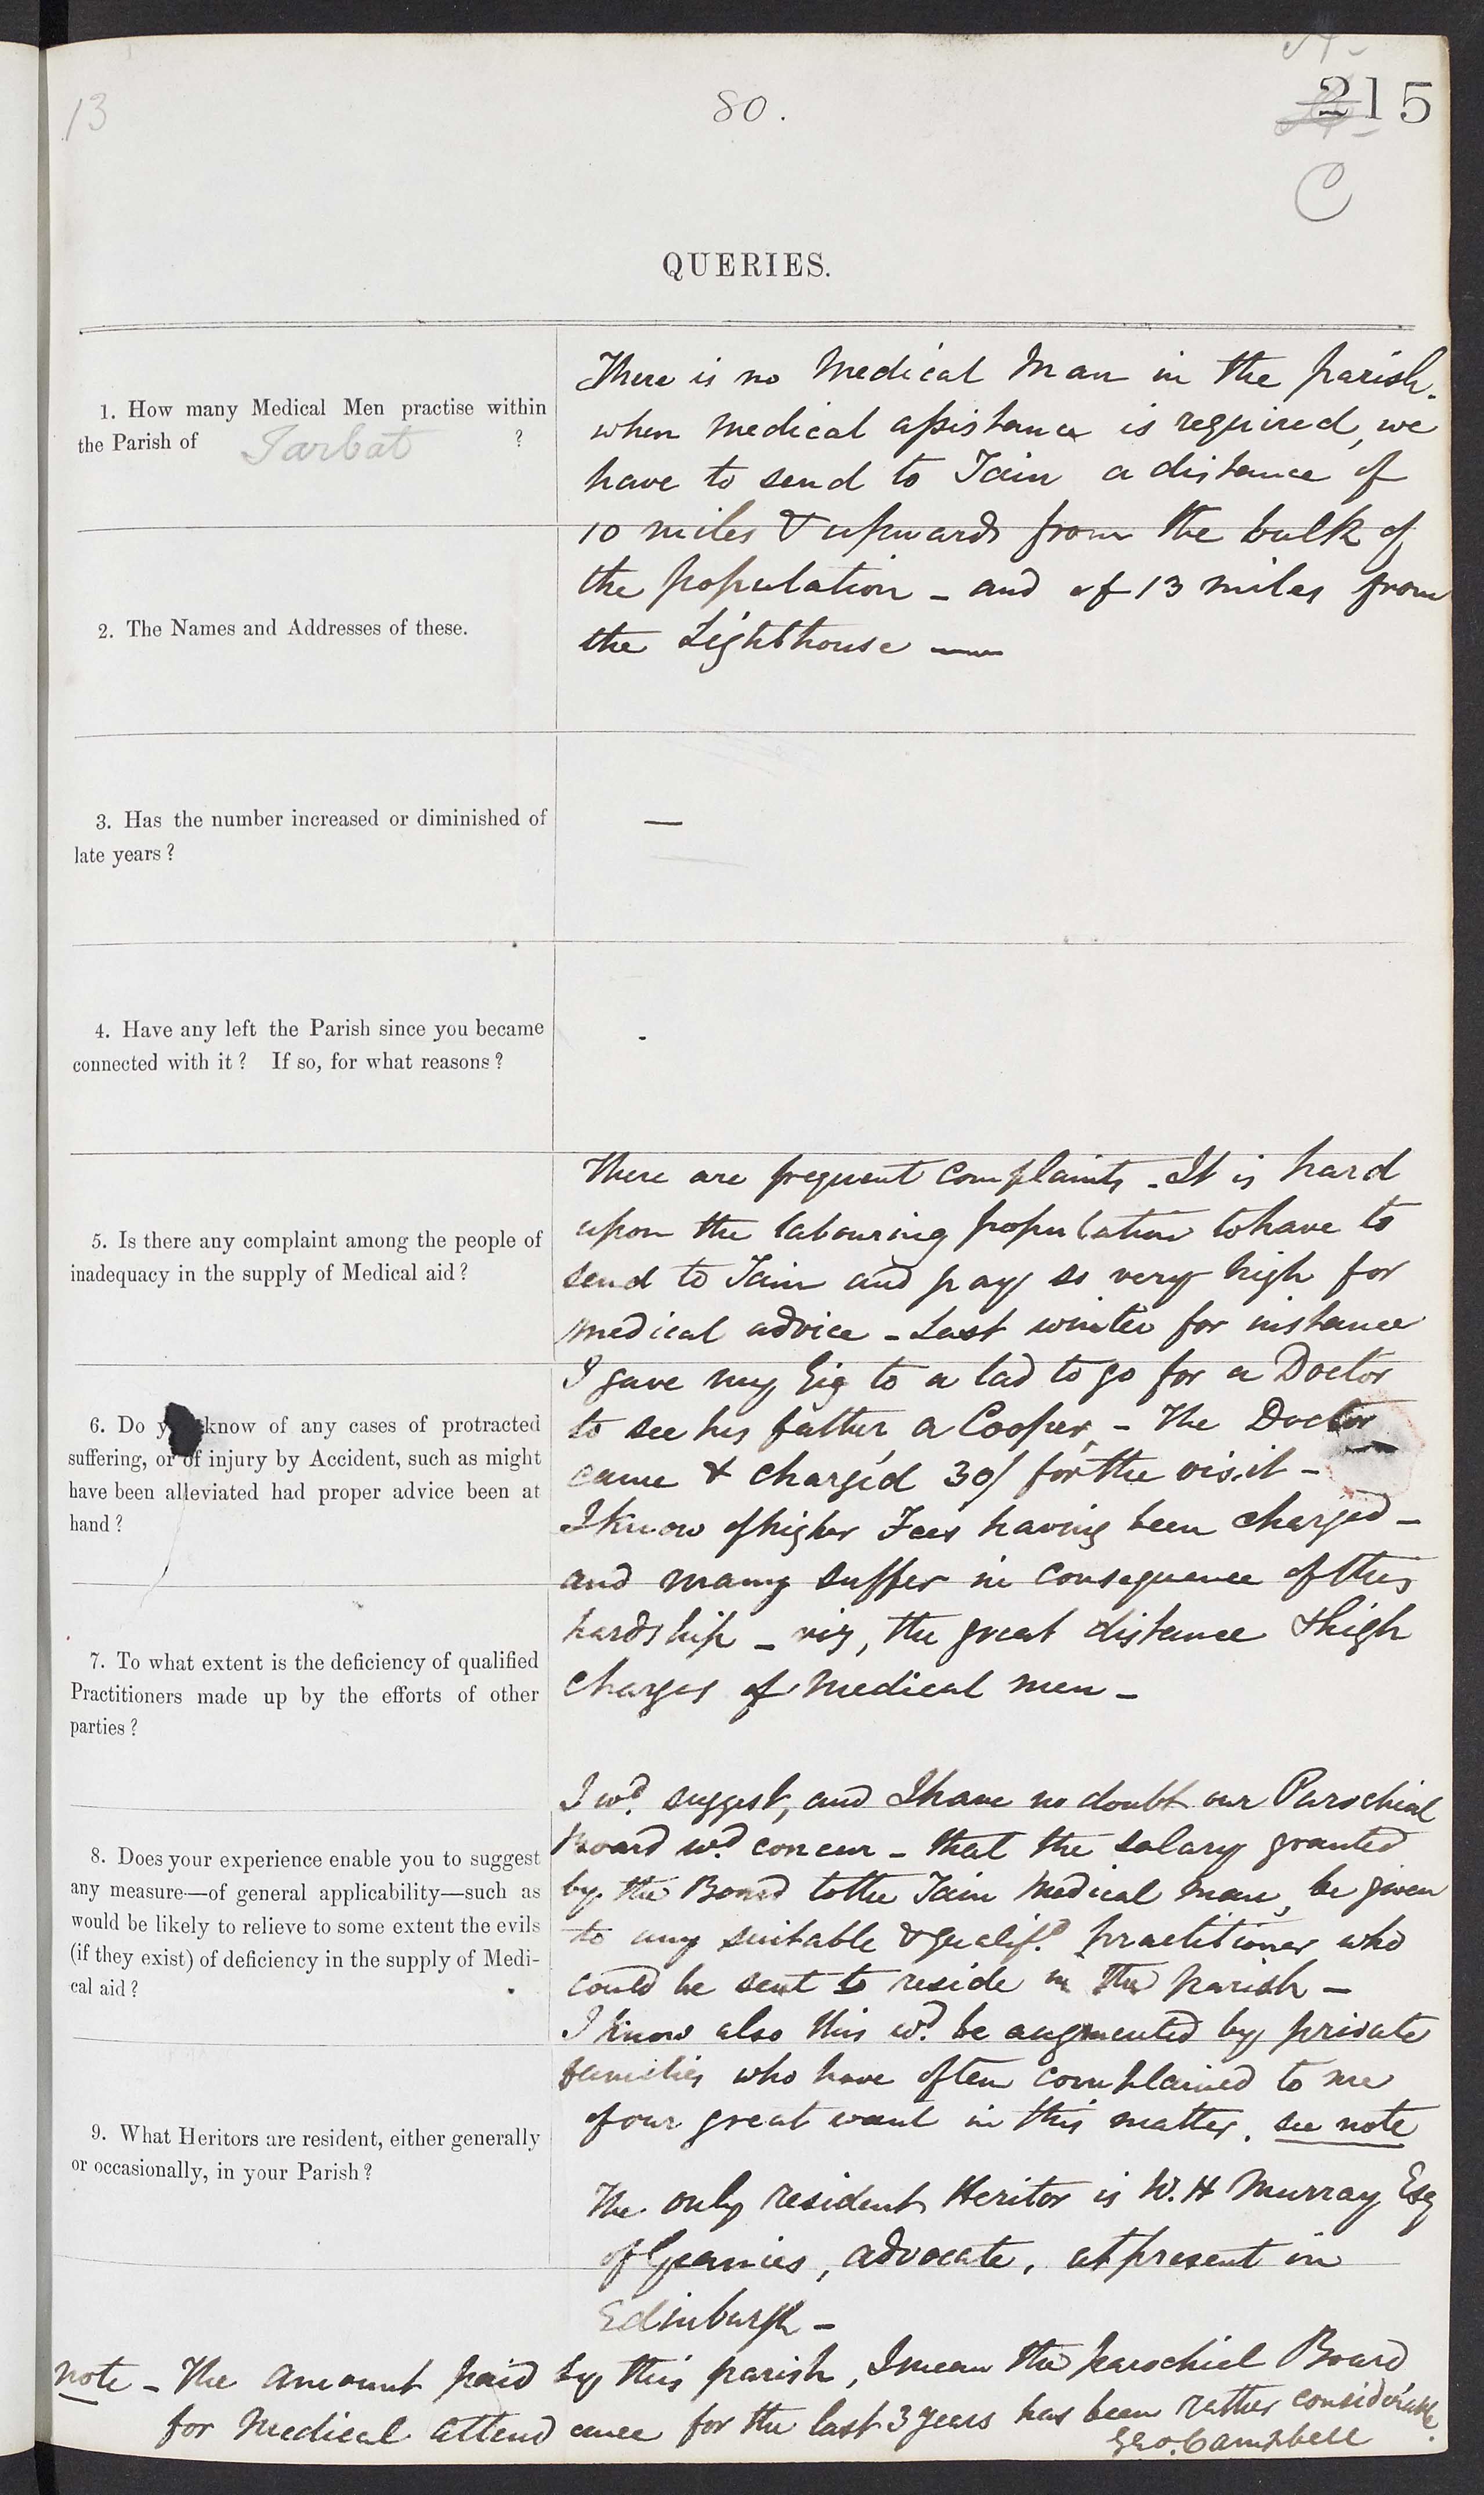 13
80.
215
C
QUERIES.
1. How many Medical Men practise within
the Parish of Tarbat ?
There is no Medical Man in the parish.
when medical assistance is required, we
have to send to Tain a distance of
10 miles & upwards from the bulk of
the population - and of 13 miles from
the Lighthouse —
2. The Names and Addresses of these.
3. Has the number increased or diminished of
late years?
—
4. Have any left the Parish since you became
connected with it? If so, for what reasons?
5. Is there any complaint among the people of
inadequacy in the supply of Medical aid?
There are frequent complaints. It is hard
upon the labouring population to have to
send to Tain and pay so very high for
medical advice - Last winter for instance
I gave my Gig to a lad to go for a Doctor
to see his father, a Cooper, - The Doctor
came & charged 30/ for the visit -
I know of higher Fees having been charged -
and many suffer in consequence of this
hardship - viz, the great distance & high
charges of Medical men -
6. Do y know of any cases of protracted
suffering, or of injury by Accident, such as might
have been alleviated had proper advice been at
hand?
7. To what extent is the deficiency of qualified
Practitioners made up by the efforts of other
parties?
8. Does your experience enable you to suggest
any measure—of general applicability—such as
would be likely to relieve to some extent the evils
(if they exist) of deficiency in the supply of Medi-
cal aid?
I wd. suggest, and I have no doubt our Parochial
Board wd. concur - that the salary granted
by the Board to the Tain Medical man, be given
to any suitable & qualifd. practitioner who
could be sent to reside in the parish -
I know also this wd. be augmented by private
families who have often complained to me
of our great want in this matter. see note
9. What Heritors are resident, either generally
or occasionally, in your Parish?
The only resident Heritor is W. H Murray Esq
of Geanies, advocate, at present in
Edinburgh -
note - The amount paid by this parish, I mean the parochial Board
for Medical attendance for the last 3 years has been rather considerable.
Geo. Campbell